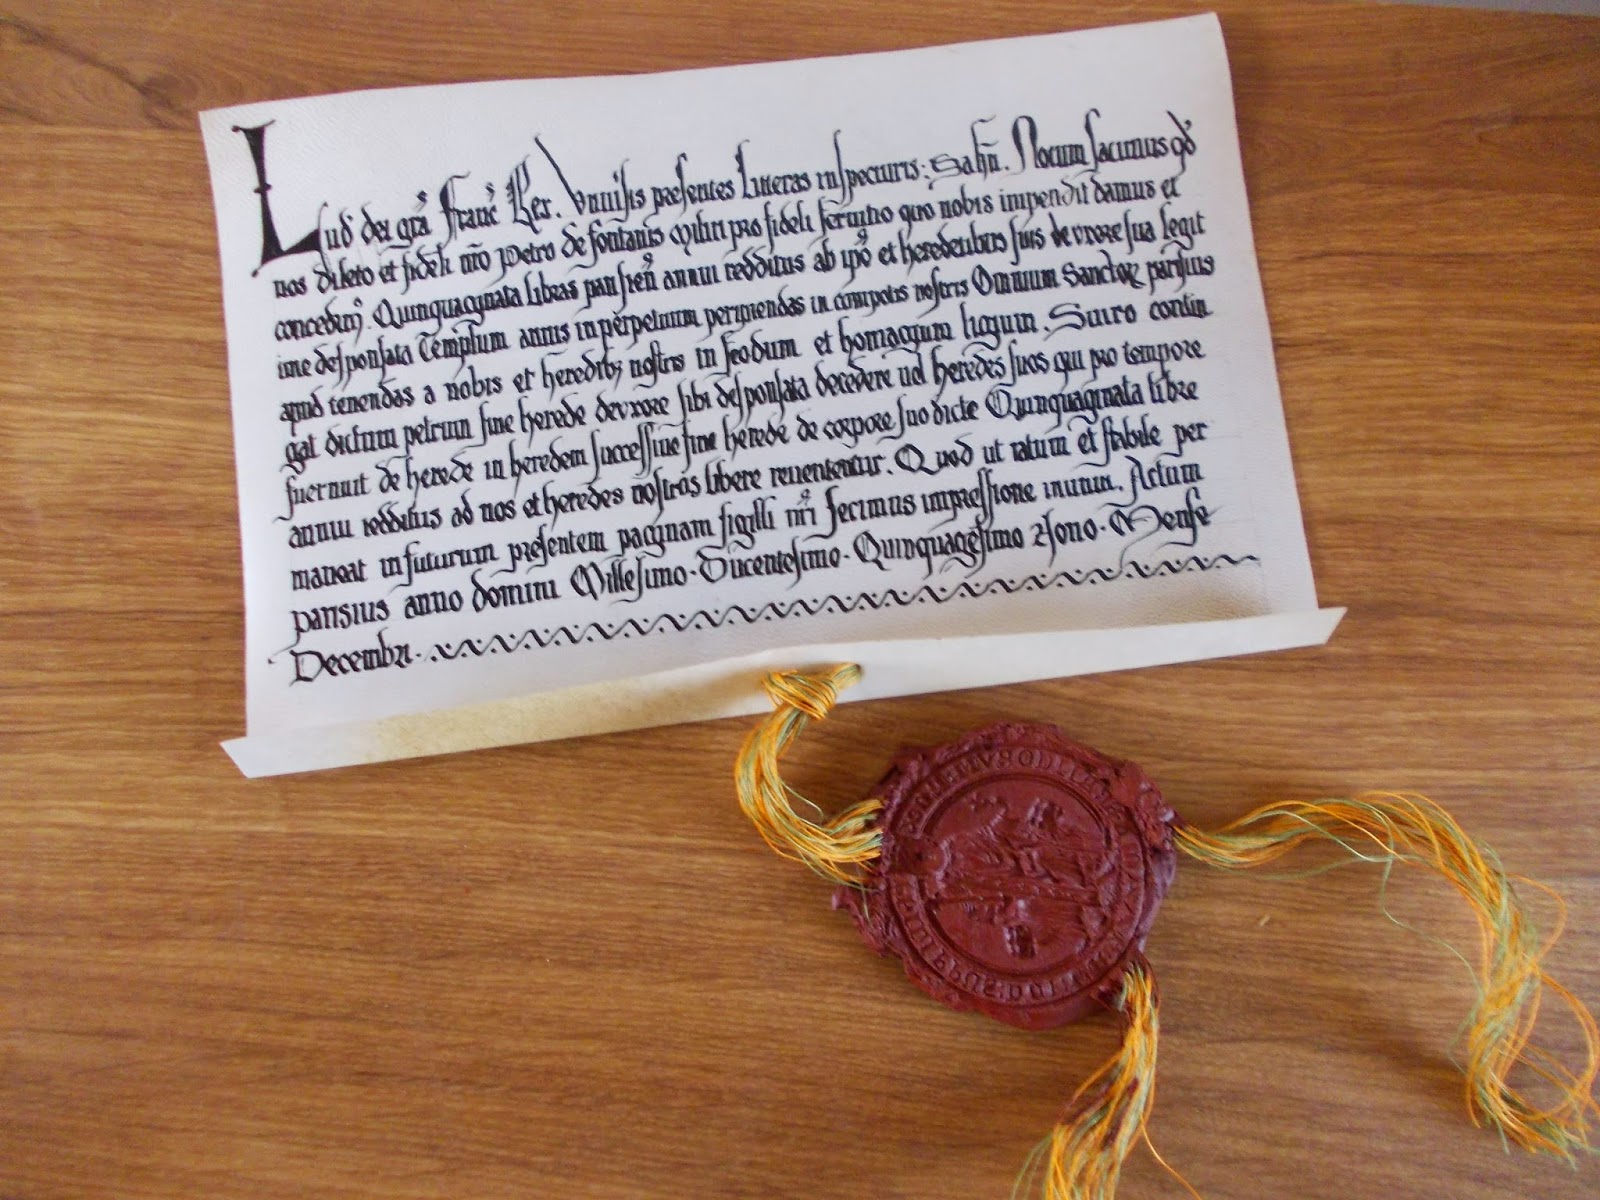 Lud' dei gra Franc' Rex. Uniu'sis presentes litteras inspecturis: Salt'm. Notum facimus qd'
nos dilecto et fideli nr'o Petro de fontanis militi pro fideli seruitio quo nobis impendit damus et
concedim'. Quinquaginta libras parisien' annui redditus ab ipo' et heredibus suis de uxore sua legit
ime desponsata Templum annis in perpetuum percipiendas in compotis nostris Omnium Sanctor parisius
apud tenendas a nobis et heredib; nostris in feodum et homagium ligium. Si uero contin
gat dictum petrum sine herede de uxore sibi desponsata decedere uel heredes suos qui pro tempore
fuerunt de herede in heredem successiue sine herede de corpore suo dicte Quinquaginata libre
annui redditus ad nos et heredes nostros libere reuertentur. Quod ut ratum et stabile per
maneat in futurum presentem paginam sigilli nr'i fecimus impressione muniri. Actum
parisius anno domini Millesimo· Ducentesimo· Quinquagesimo Nono· Mense
Decembri·